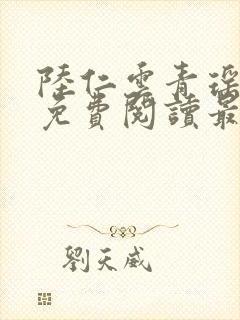 陸仁雲青瑤
免費閱讀最
劉天威